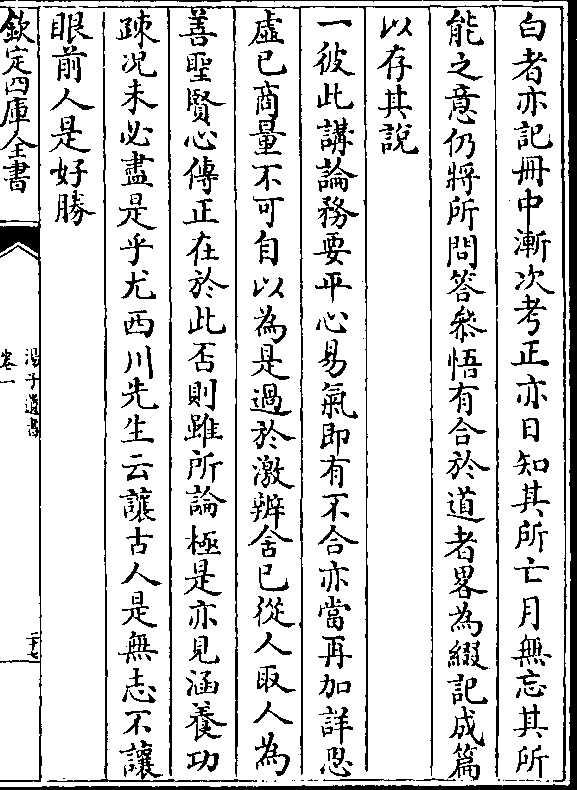 白者亦記冊中漸次考正亦日知其所亡月無忘其所
能之意仍將所問答叅悟有合於道者畧為綴記成篇
以存其說
一彼此講論務要平心易氣即有不合亦當再加詳思
虛已商量不可自以為是過於激辨舍已從人取人為
善聖賢心傳正在於此否則雖所論極是亦見涵養功
疎况未必盡是乎尤西川先生云讓古人是無志不讓
眼前人是好勝
欽定四庫全書
湯子遺書
卷一